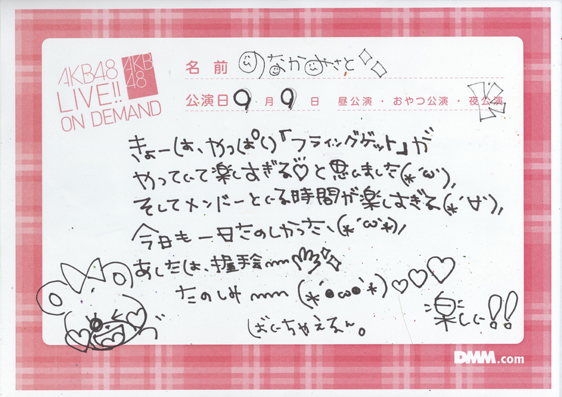 AKB48
LIVE!!
ON DEMAND
AKB
48
名前 のなかみさと
公演日 9月9日 昼公演・おやつ公演・夜公演
きょーは、やっぱり「フライングゲット」が
やってて楽しすぎる♡と思いました(*´ω`)、
そしてメンバーといる時間が楽しすぎる(*´∀`)、
今日も一日たのしかった、(*´ω`*)、
あしたは、握手会
たのしみ (*●ω●*)♡♡♡
楽しい!!
ばいちゃえん。
DMM.com